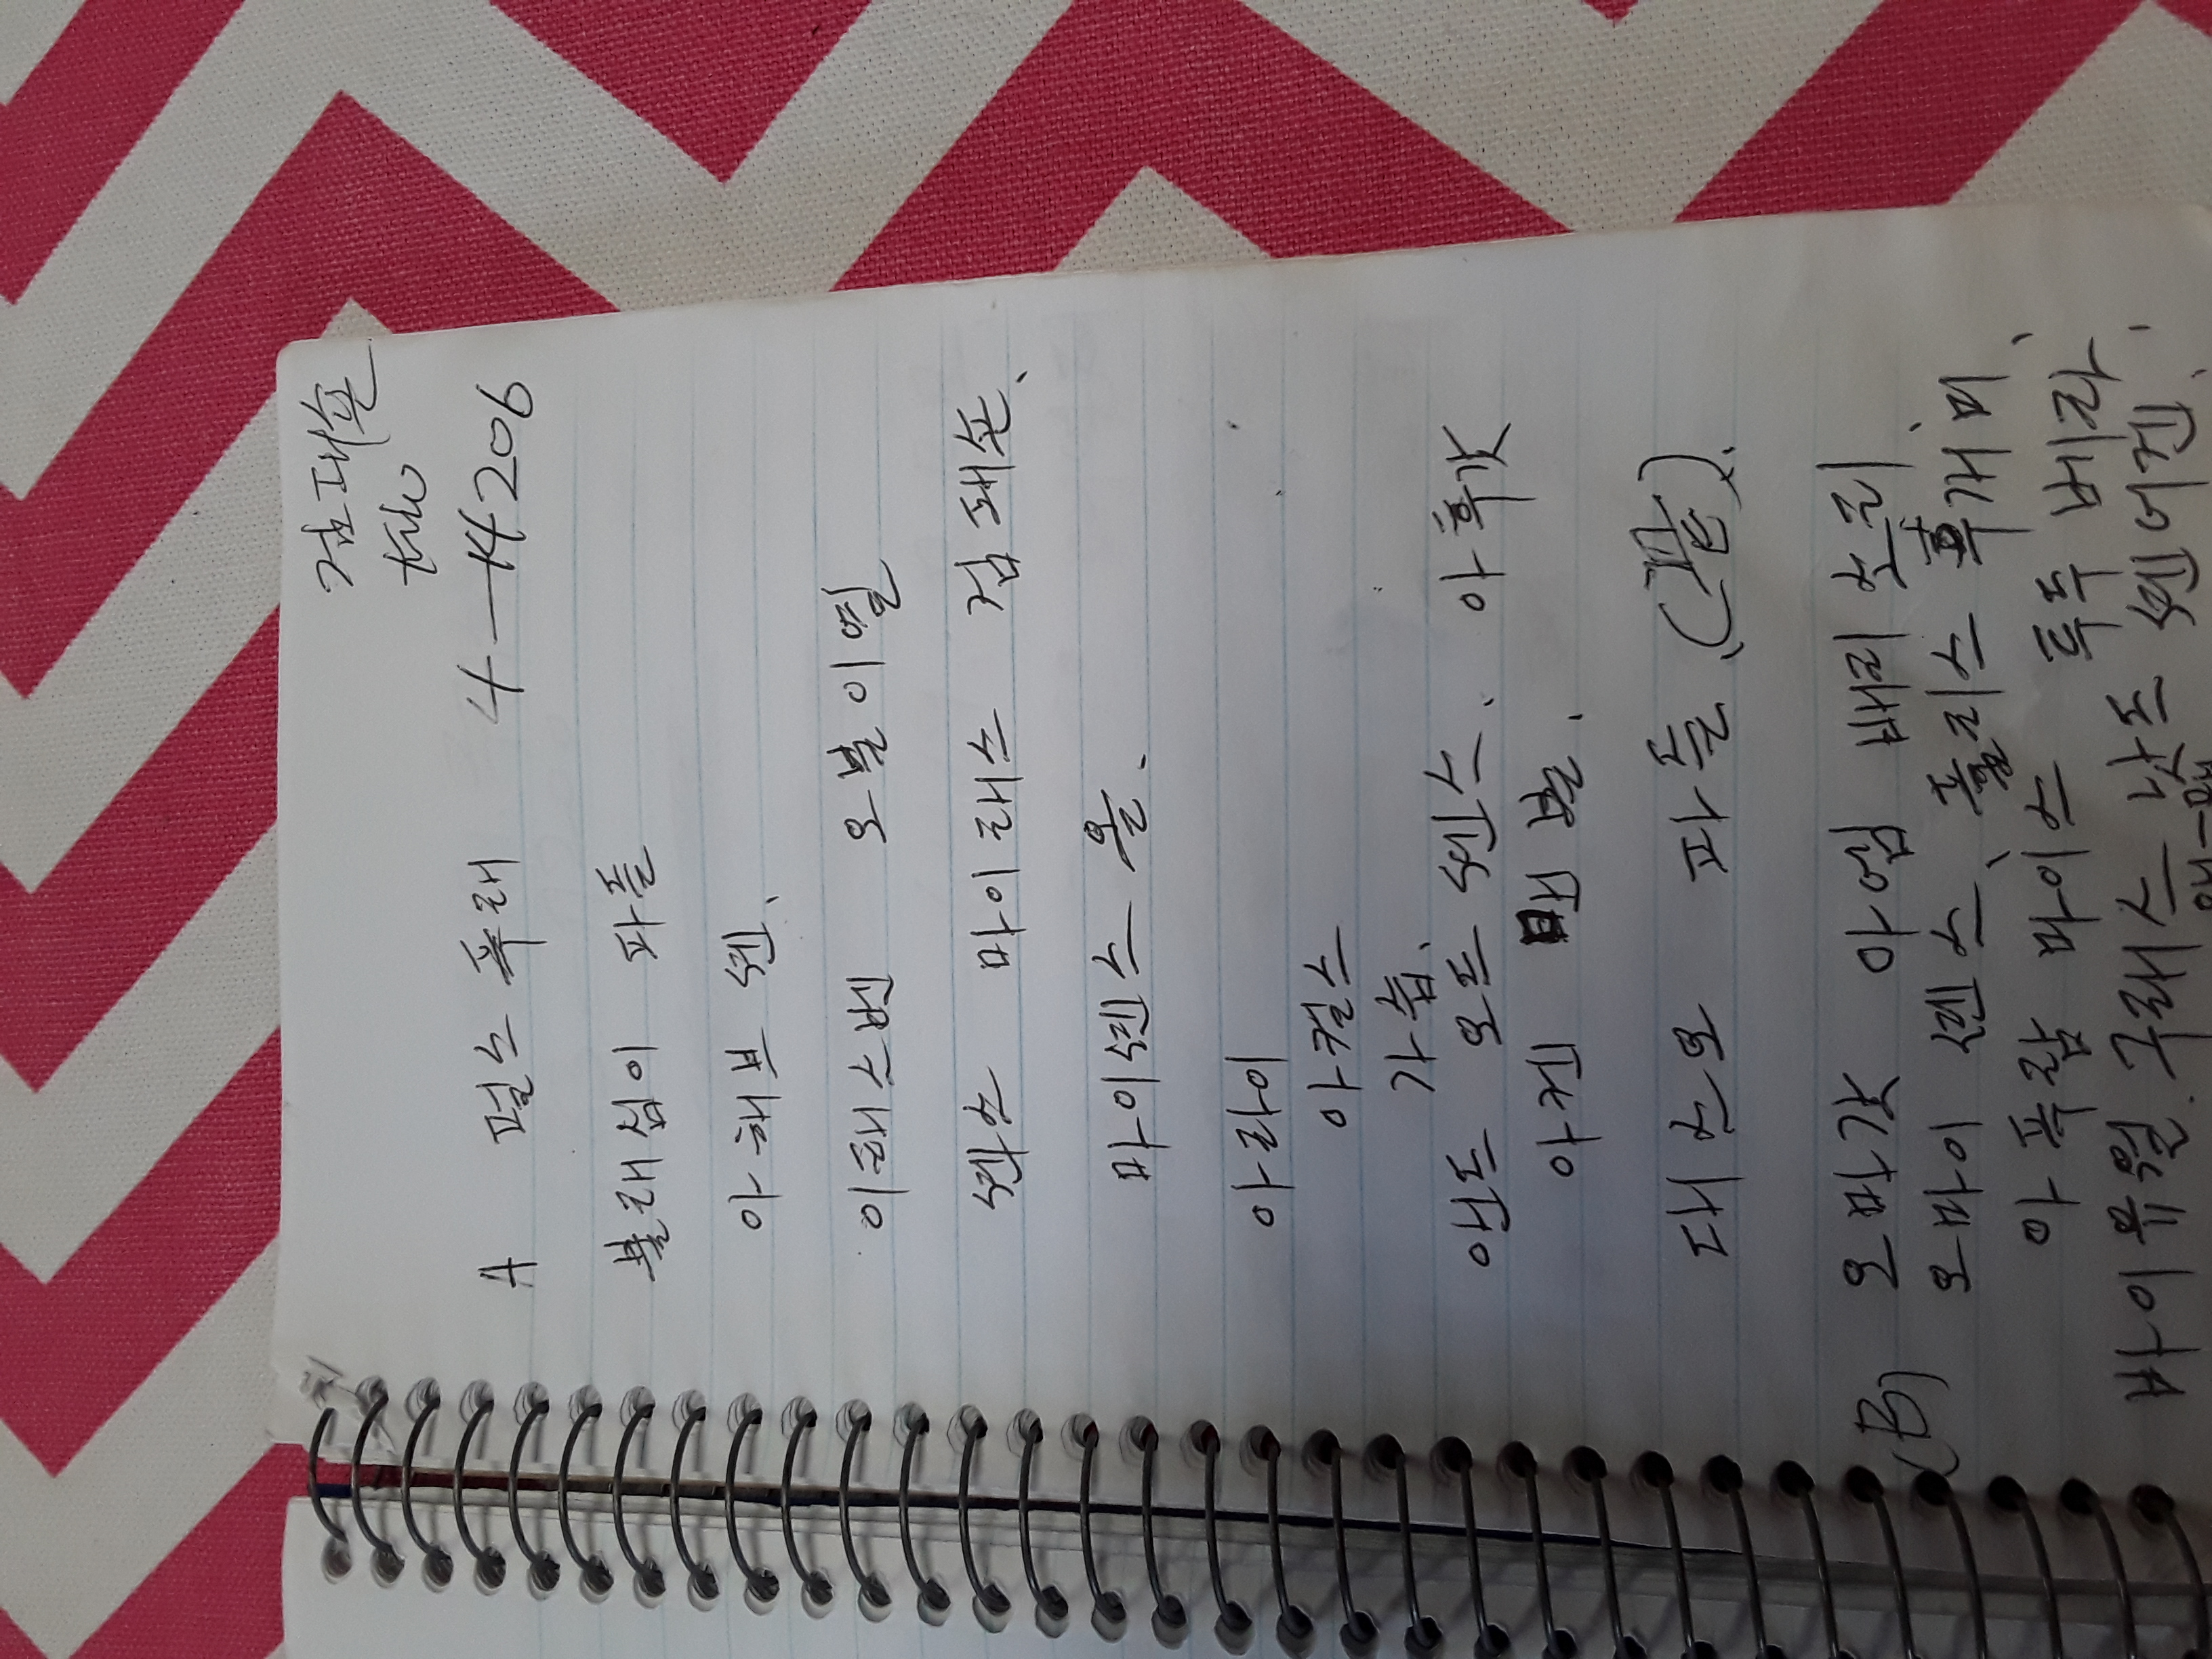 검패숀
A 펄스푸래 4-14206
불래심이 파들
아해브 쎈.
이태스벤 오불이열
쎈스 마이래스 검패숀.
마이쎈스 올.
아라이
아컬스
가습.
앤드 오드 쎈스. 아후갓
아켄 맨블.
대스오 파들.(끝).
(B) 오마갓 아엠 배리 소리.
오마이 쎈스. 풀리스 후기미.
아푸람 마이스 투두 베라.
바이유월. 구래스 낫드 쎈어겐.